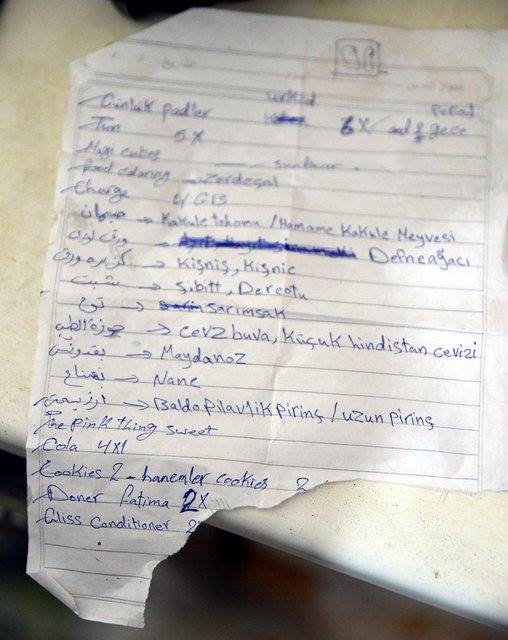 Günlük pedler 6X and 8 gece
Tun 5X
Magi cubes
food coloring → Zerdeçal
Charge 4 GB
→ Kakule tohomu / Hamame Kakule Meyvesi
ورق لورى → Defneağacı
كزبره ورق → Kişniş, Kişnic
شبت → Şibitt, Dereotu
توم → Sarin sarimsak
جوزة الطيب → cevz buva, Küçuk hindistan cevizi
بقدونس → Maydanoz
نعناع → Nane
→ Baldo Pilavlik pirinç / uzun pirinç
The pink thing sweet
Cola 4X1
Cookies 2 - hanemler cookies 2
Doner fatima 2X
Gliss Conditioner 2